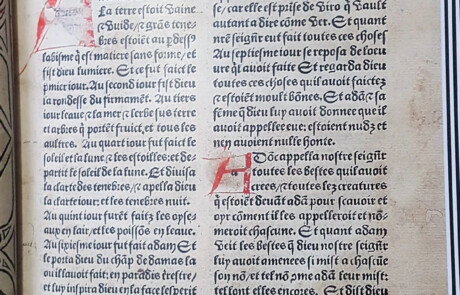 La terre estoit vaine
⁊ vuide/⁊ grãs tene-
bres estoiẽt au p̲dess⁹
labisme q̃ est matiere sans forme/ et
fist dieu lumiere. Et ce fut faict le
p̲mier iour. Au second iour fist dieu
la rondesse du firmamẽt. Au tiers
iour la mer ⁊ la terre ⁊ lerbe sus terre
et arbres q̃ portẽt fruict, et tous les
aultres. Au quart iour fut faict le
soleil et la lune ⁊ les estoilles: et de-
partit le soleil de la lune. Et diuisa
la clarte des tenebres/⁊ apella dieu
la clarte iour: et les tenebres nuit.
Au quint iour furẽt faitz les oyse-
aux en lair/ et les poissõs en leaue.
Au sixiesme iour fut faict adam Et
le porta dieu du chãp de damas la
ou il lauoit fait: en paradis trestre/
et luy inspira dieu en la face lesperit
se/ car elle est prise de Viro q̃ vault
autant a dire cõme ver. Et quant
nr̃e seignr̃ eut fait toutes ces choses
Au septiesme iour se reposa de loeu
ure q̃l auoit faite. Et regarda dieu
toutes ces choses quil auoit faictez
⁊ estoiẽt moult bõnes. Et adã ⁊ sa
fẽme q̃ dieu luy auoit donnee que il
auoit appellee eue: estoient nudz et
ney auoient nulle honte.
ADõc appella nostre seignr̃
toutes les bestes quil auoit
crees/⁊ toutes lez creatures
q̃ estoiẽt deuãt adã pour scauoir et
oyr cõment il les appelleroit et nõ-
meroit chascune. Et quant adam
veit les bestes q̃ dieu nostre seignr̃
luy auoit amenees si mist a chascũe
son nõ/ et tel nõ cõme adam leur mist:
tel ont elles encores. Et dist dieu